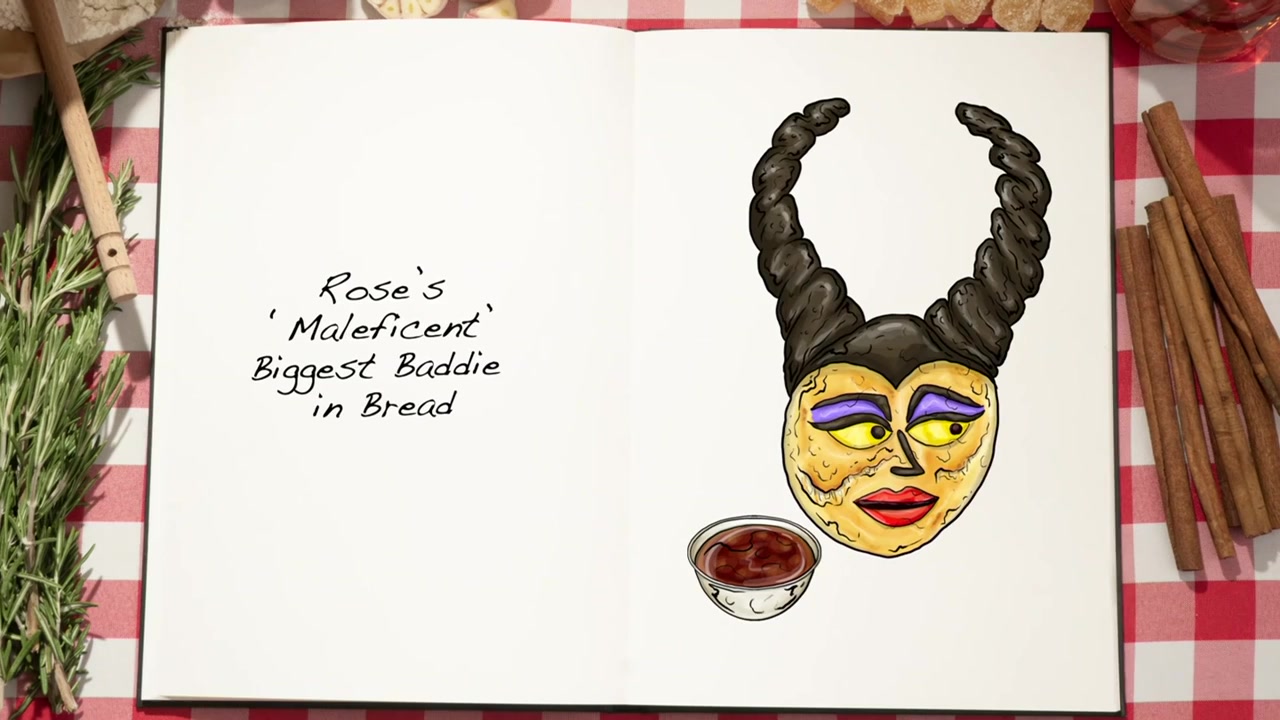 Rose's
'Maleficent'
Biggest Baddie
in Bread